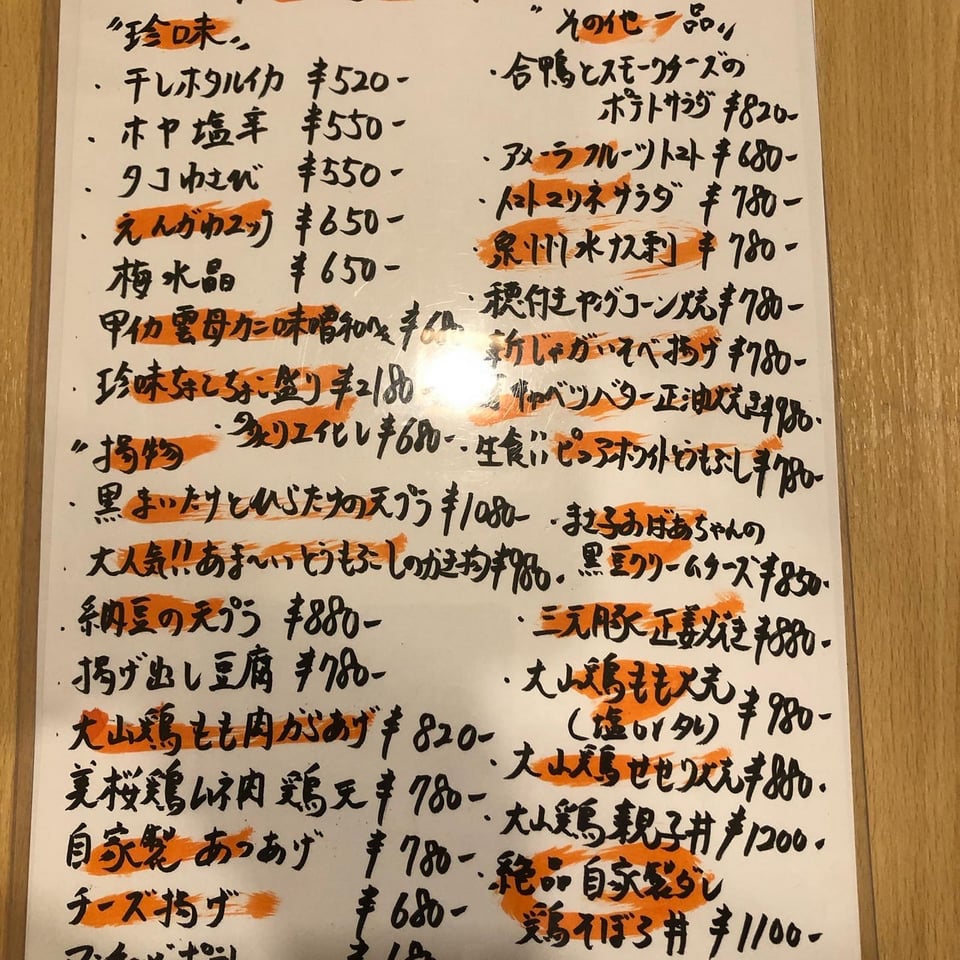 "珍味"
・干しホタルイカ ¥520-
・ホヤ塩辛 ¥550-
・タコわさび ¥550-
・えんがわユッケ ¥650-
梅水晶 ¥650-
甲イカ雲母カニ味噌和え
・珍味ちょこちょこ盛り ¥2180-
・炙りエイヒレ ¥680-
"揚物
・黒まいたけとひらたけの天プラ ¥1080-
・大人気!!あま〜いとうもろこしのかき揚 ¥980.
・納豆の天プラ ¥880-
・揚げ出し豆腐 ¥780-
大山鶏もも肉からあげ ¥820-
美桜鶏ムネ肉鶏天 ¥780-
自家製あつあげ ¥780-
チーズ揚げ ¥680-
"その他一品"
・合鴨とスモークチーズの
ポテトサラダ ¥820-
・アメーラフルーツトマト ¥680-
・トマトマリネサラダ ¥780-
・泉州水ナス刺 ¥780-
・穂付きヤングコーン焼 ¥780-
新じゃがいそべ揚げ ¥780-
キャベツバター正油焼き ¥980.
・生食!!ピュアホワイトとうもろこし ¥780-
・まさ子おばあちゃんの
黒豆クリームチーズ ¥850.
・三元豚正姜焼き ¥880-
・大山鶏もも焼
(塩orタレ) ¥980-
・大山鶏せせり焼 ¥880.
・大山鶏親子丼 ¥1200.
・絶品自家製ダレ
鶏そぼろ丼 ¥1100-